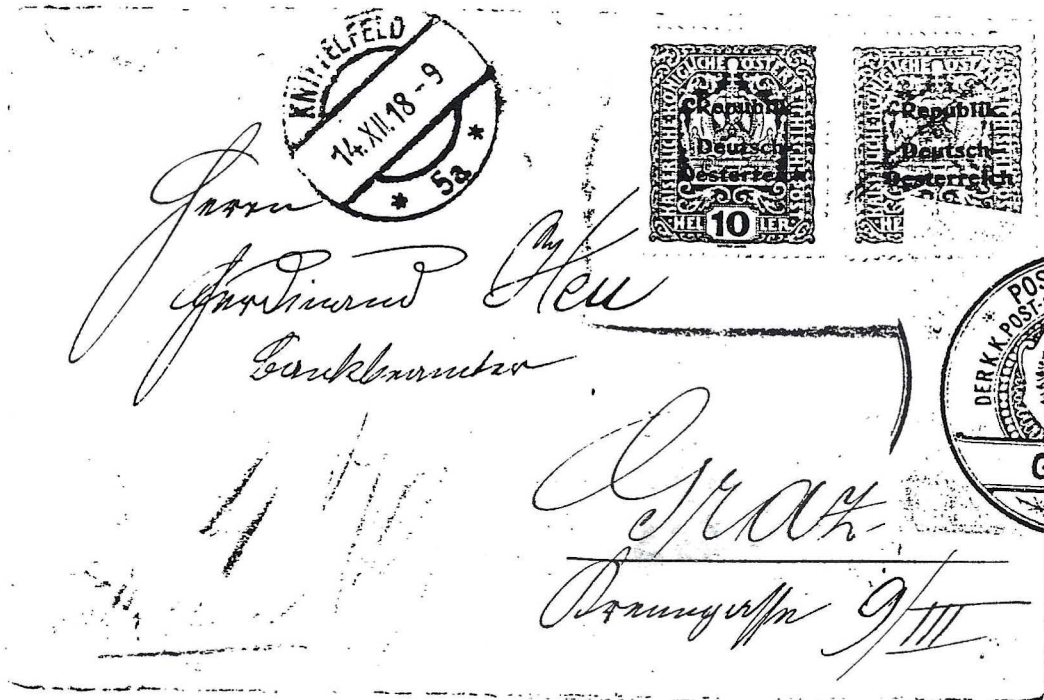 KNITTELFELD
14.XII.18-9
* 5a *
KAISERLICHE KÖNIGLICHE ÖSTERREICHISCHE POST
Republik
Deutsch-
Oesterreich
HELLER
10
Republik
Deutsch-
Oesterreich
HEL
Herrn
Ferdinand Heu
Bankbeamter
POS
DER K.K. POST-
G
Graz
9/III